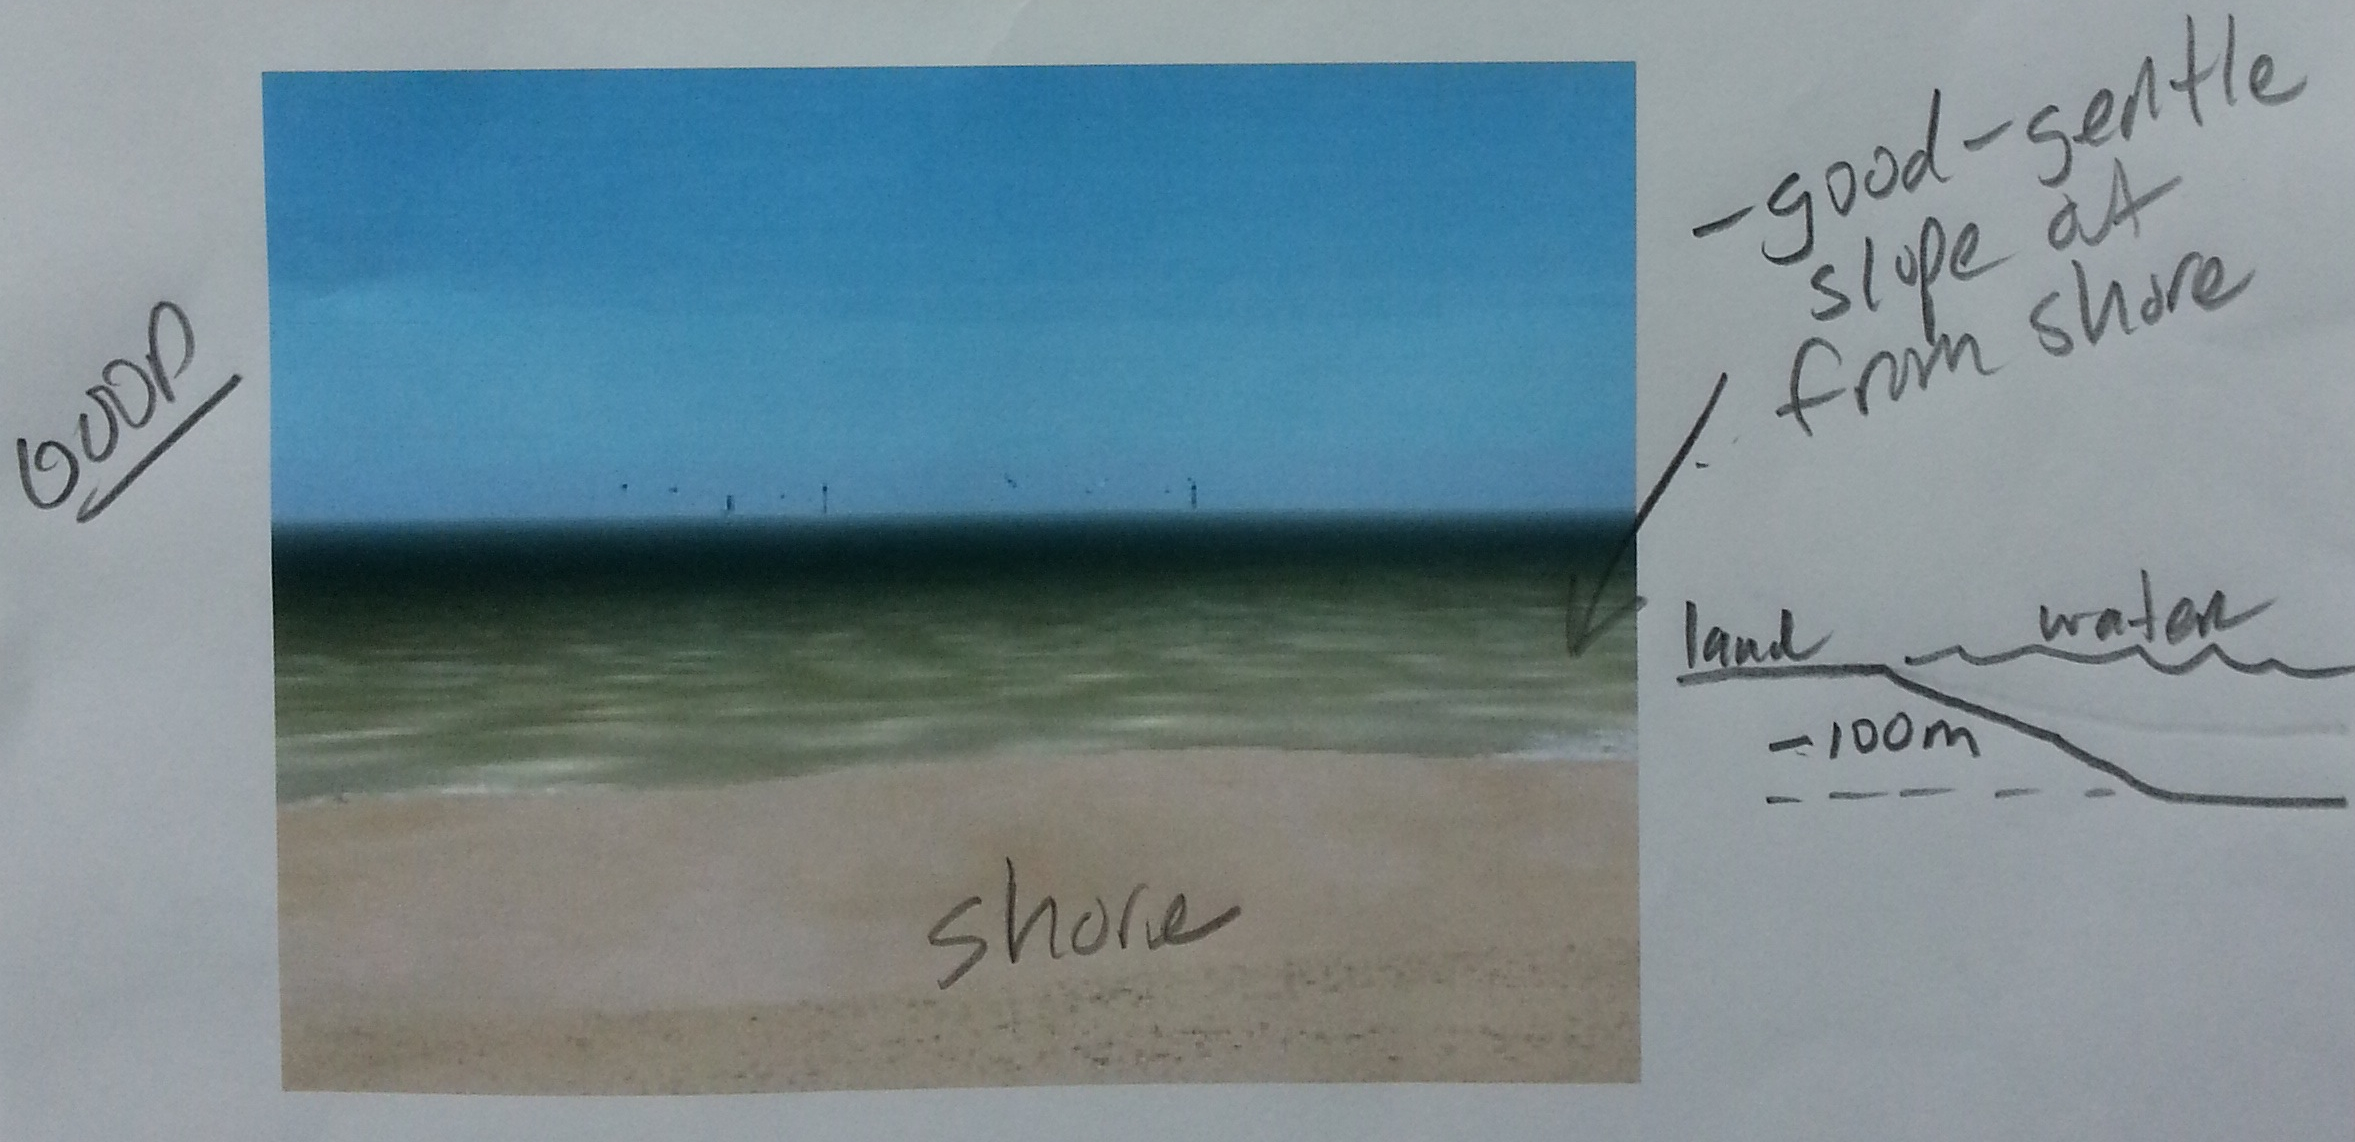 GOOD
-good-gentle
slope at
from shore
land
water
-100m
shore